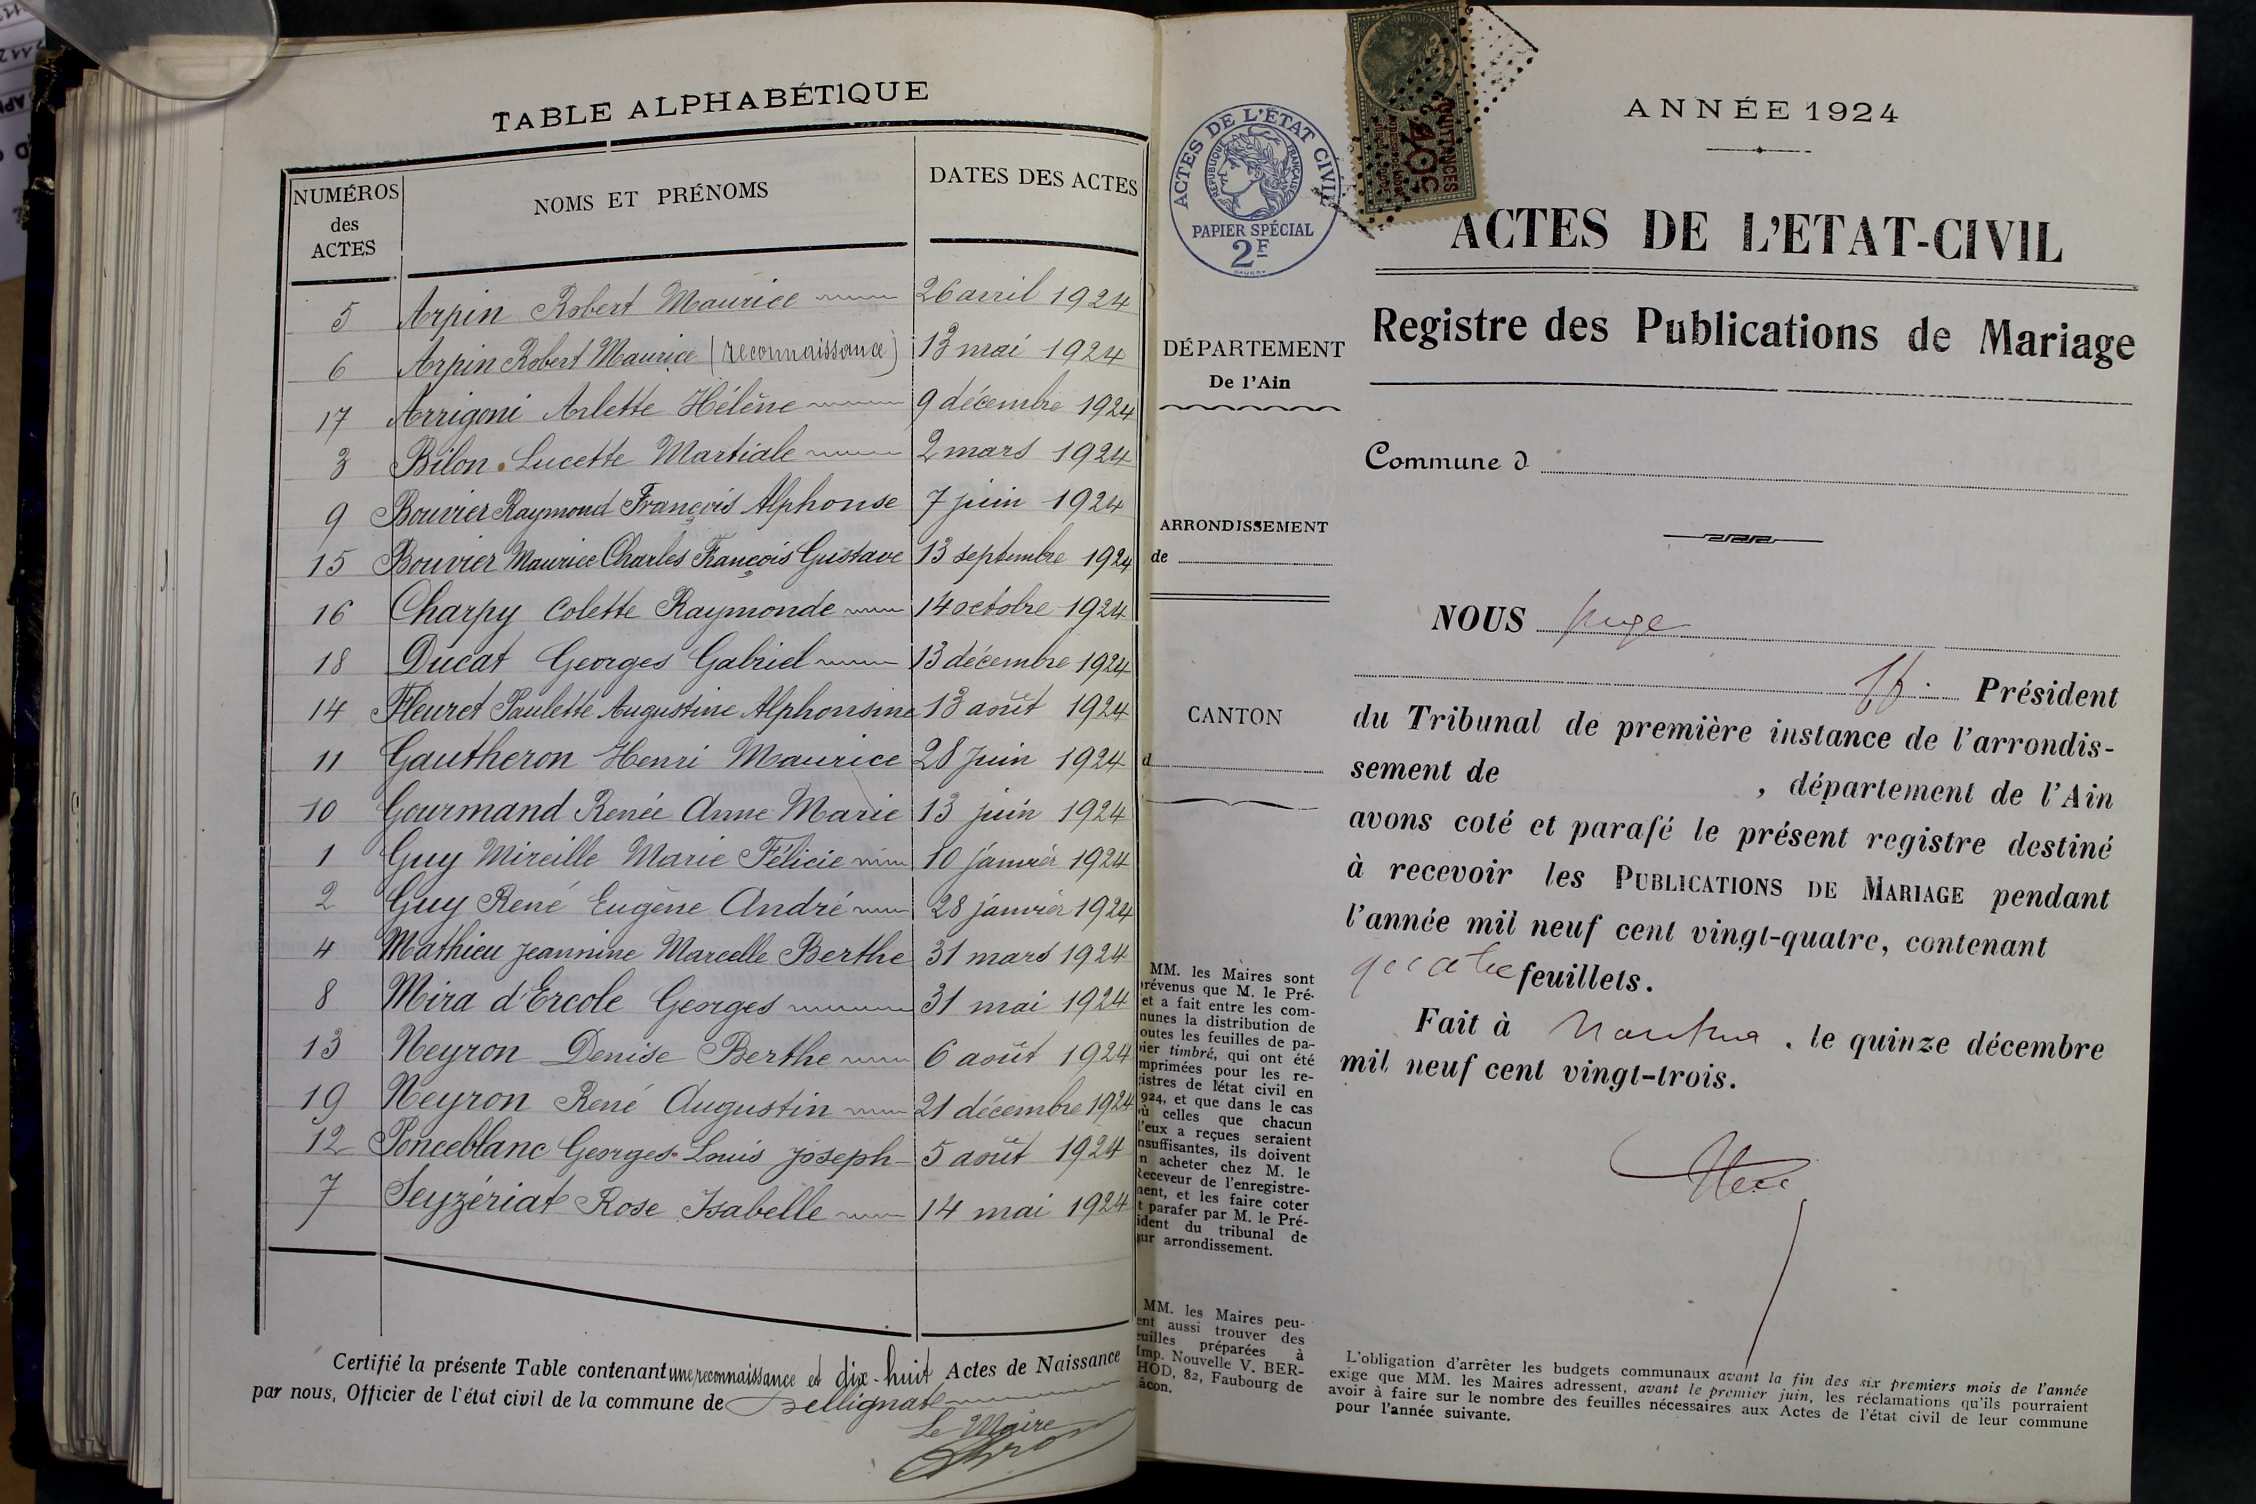 TABLE ALPHABÉTIQUE
NUMÉROS des ACTES
NOMS ET PRÉNOMS
DATES DES ACTES
5 Arpin Robert Maurice 26 avril 1924
6 Arpin Robert Maurice (reconnaissance) 13 mai 1924
17 Arrigoni Arlette Hélène 9 décembre 1924
3 Bilon Lucette Martiale 2 mars 1924
9 Bouvier Raymond François Alphonse 7 juin 1924
15 Bouvier Maurice Charles François Gustave 13 septembre 1924
16 Charpy Colette Raymonde 14 octobre 1924
18 Ducat Georges Gabriel 13 décembre 1924
14 Fleuret Paulette Augustine Alphonsine 13 août 1924
11 Gautheron Henri Maurice 28 juin 1924
10 Gourmand Renée Anne Marie 13 juin 1924
1 Guy Mireille Marie Félicie 10 janvier 1924
2 Guy René Eugène André 28 janvier 1924
4 Mathieu Jeannine Marcelle Berthe 31 mars 1924
8 Mira d'Ercole Georges 31 mai 1924
13 Neyron Denise Berthe 6 août 1924
19 Neyron René Augustin 21 décembre 1924
12 Ponceblanc Georges Louis Joseph 5 août 1924
7 Seyzériat Rose Isabelle 14 mai 1924
Certifié la présente Table contenant une reconnaissance et dix-huit Actes de Naissance
par nous, Officier de l'état civil de la commune de Bellignat
Le Maire
ACTES DE L'ÉTAT CIVIL
RÉPUBLIQUE FRANÇAISE
PAPIER SPÉCIAL
2F
QUITTANCES
40c
DÉPARTEMENT
De l'Ain
ARRONDISSEMENT
de
CANTON
d
MM. les Maires sont
prévenus que M. le Pré-
et a fait entre les com-
munes la distribution de
toutes les feuilles de pa-
pier timbré, qui ont été
imprimées pour les re-
gistres de l'état civil en
1924, et que dans le cas
où celles que chacun
d'eux a reçues seraient
insuffisantes, ils doivent
en acheter chez M. le
Receveur de l'enregistre-
ment, et les faire coter
et parafer par M. le Pré-
sident du tribunal de
leur arrondissement.
MM. les Maires peu-
vent aussi trouver des
feuilles préparées à
Imp. Nouvelle V. BER-
HOD, 82, Faubourg de
Mâcon.
ANNÉE 1924
ACTES DE L'ETAT-CIVIL
Registre des Publications de Mariage
Commune d
NOUS Juge
ff. Président
du Tribunal de première instance de l'arrondis-
sement de , département de l'Ain
avons coté et parafé le présent registre destiné
à recevoir les PUBLICATIONS DE MARIAGE pendant
l'année mil neuf cent vingt-quatre, contenant
quatre feuillets.
Fait à Nantua, le quinze décembre
mil neuf cent vingt-trois.
L'obligation d'arrêter les budgets communaux avant la fin des six premiers mois de l'année
exige que MM. les Maires adressent, avant le premier juin, les réclamations qu'ils pourraient
avoir à faire sur le nombre des feuilles nécessaires aux Actes de l'état civil de leur commune
pour l'année suivante.